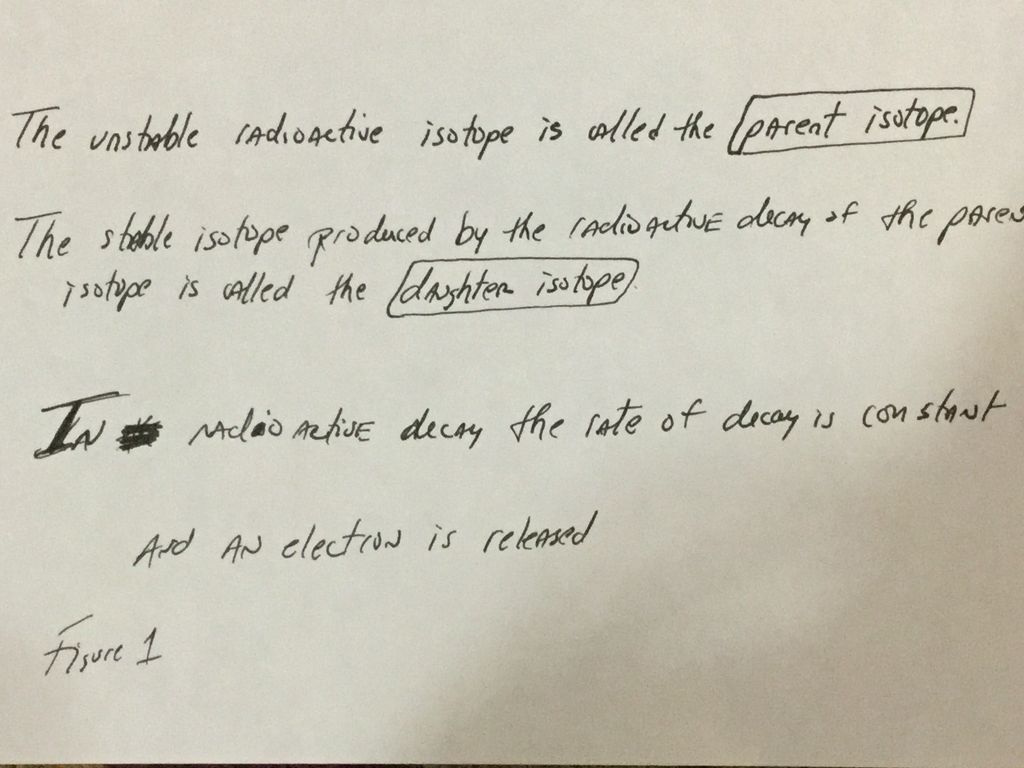 The unstable radioactive isotope is called the parent isotope.
The stable isotope produced by the radioactive decay of the paren
isotope is called the daughter isotope.
In radioactive decay the rate of decay is constant
and an electron is released
Figure 1